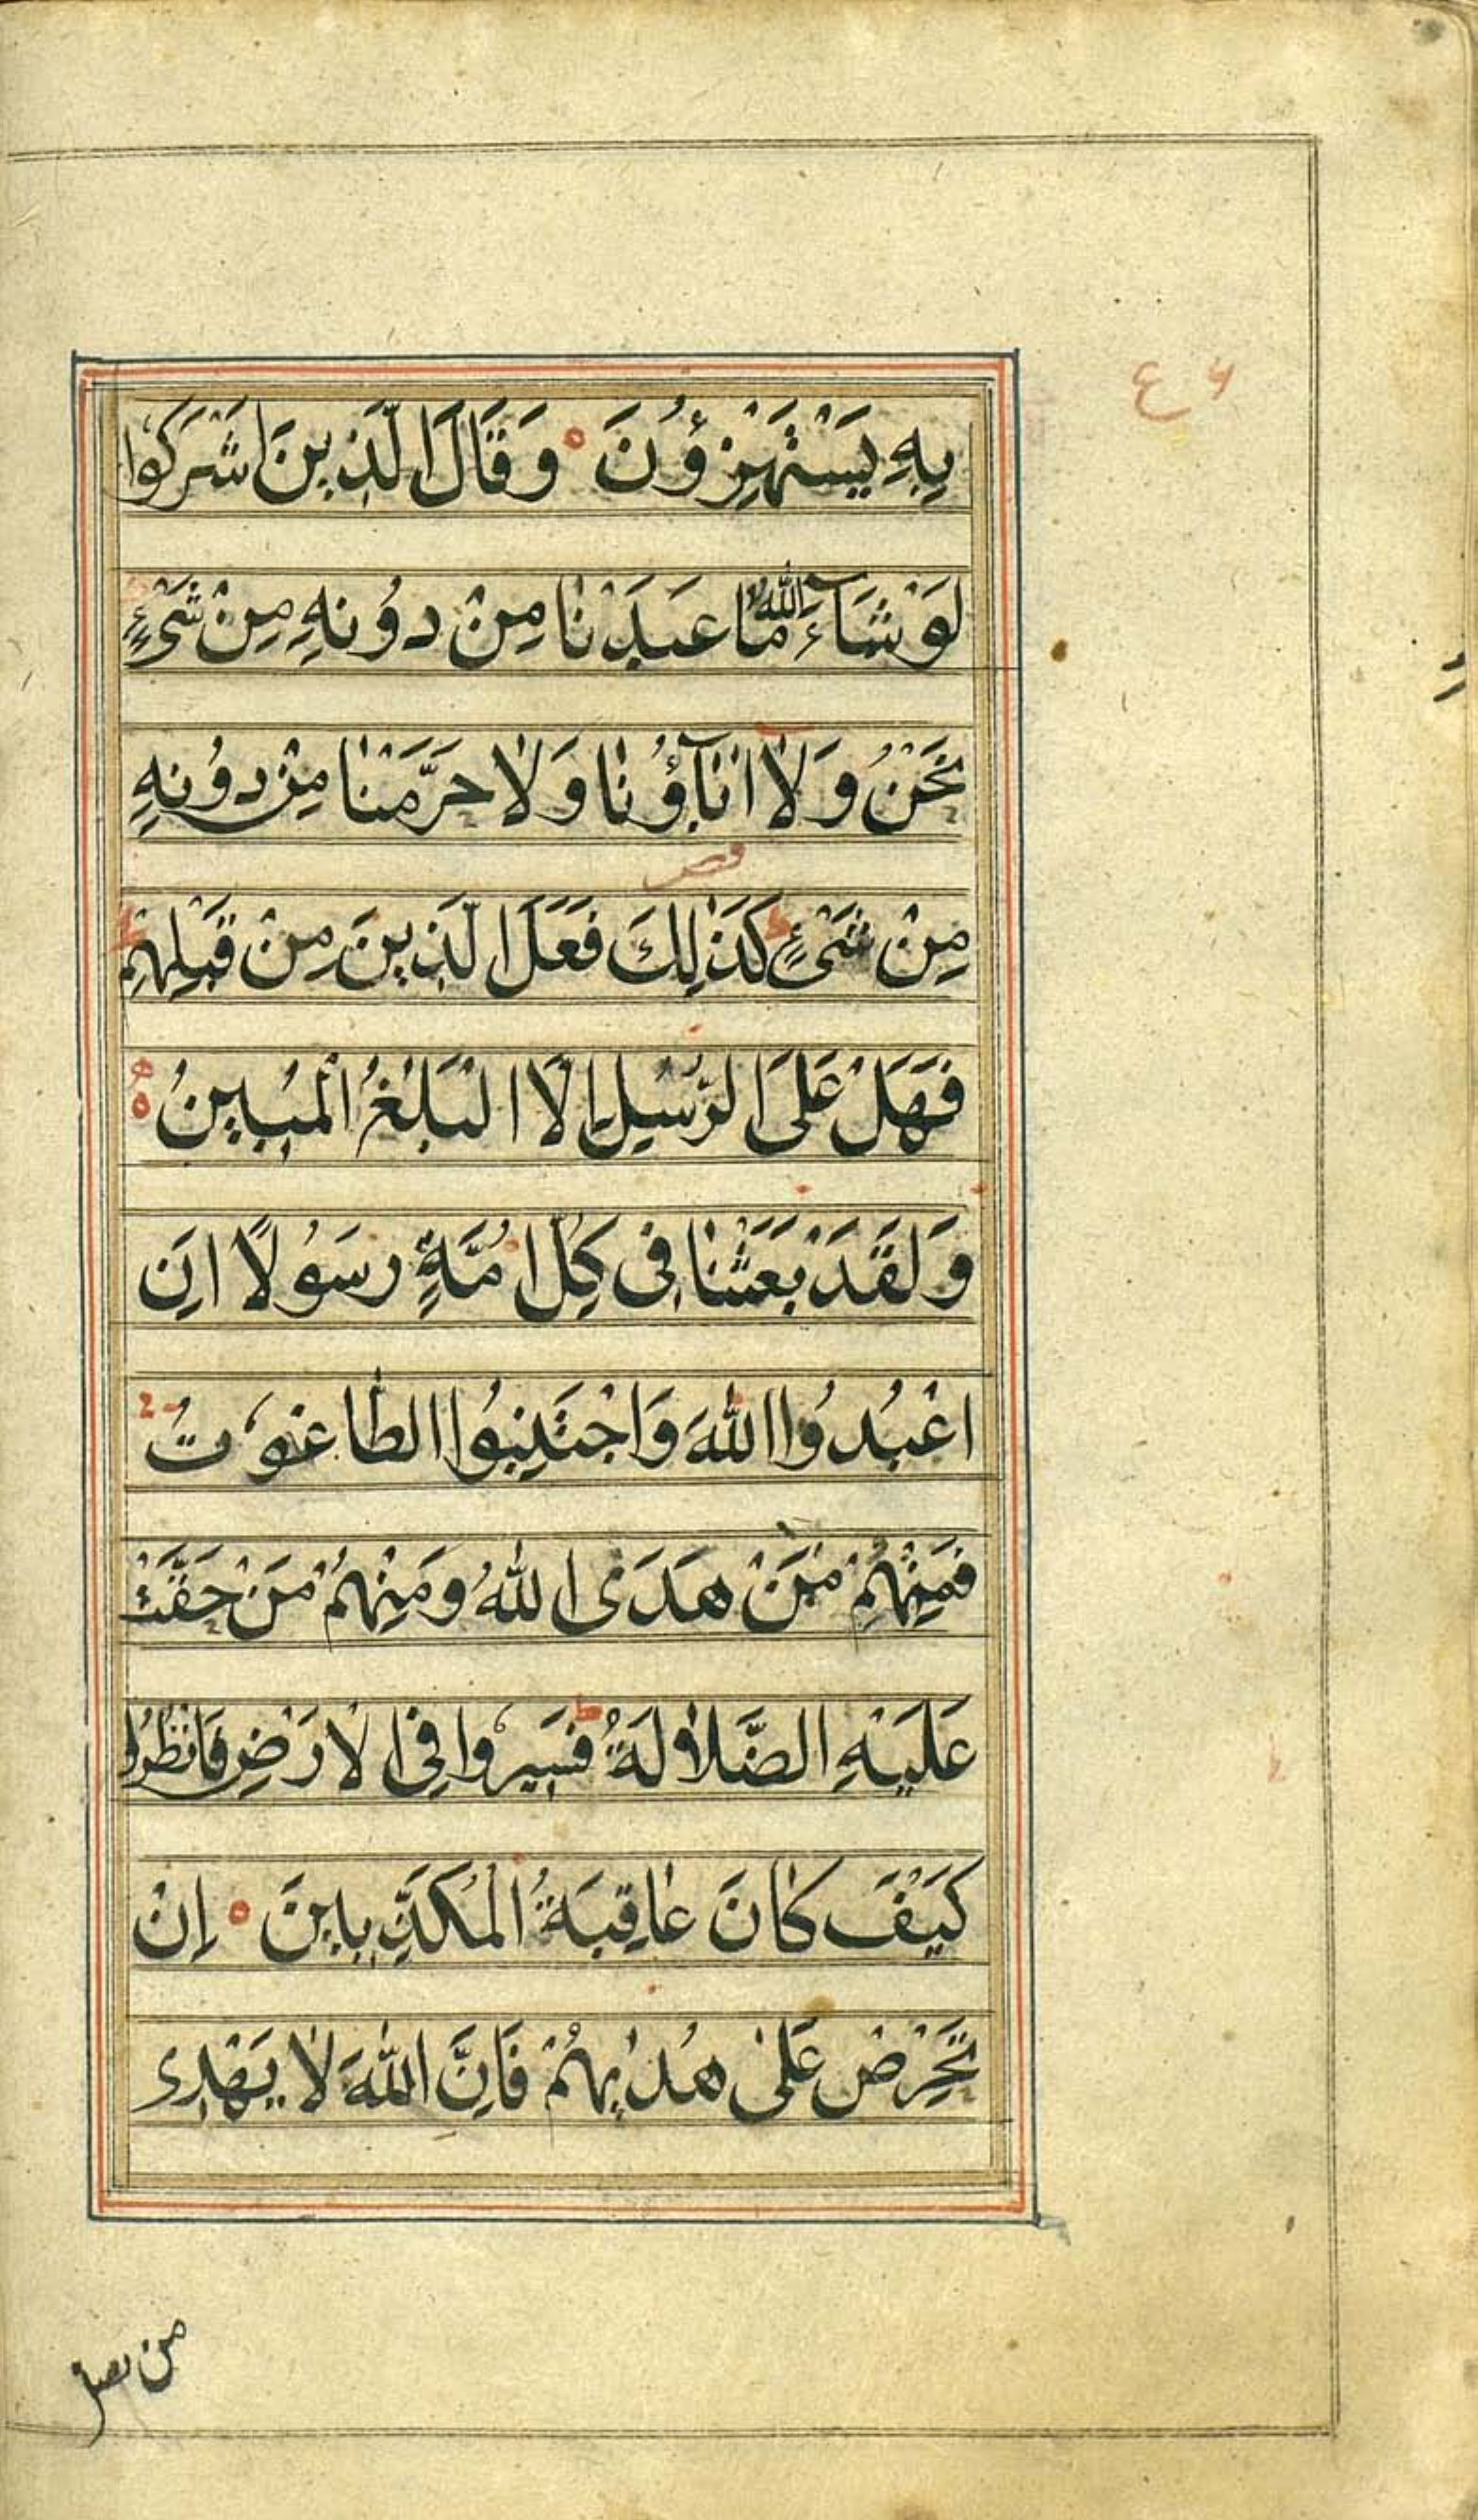 ع ۶
بِهِ يَسْتَهْزِؤُنَ ه وَقَالَ الَّذِينَ اشْرَكُوا
لَوْ شَآءَ اللّٰهُ مَا عَبَدْنَا مِنْ دُونِهِ مِنْ شَیْءٍ
نَحْنُ وَلَا اٰبَآؤُنَا وَلَا حَرَّمْنَا مِنْ دُونِهِ
مِنْ شَیْءٍ ط كَذٰلِكَ فَعَلَ الَّذِينَ مِنْ قَبْلِهِمْ
فَهَلْ عَلَى الرُّسُلِ اِلَّا الْبَلٰغُ الْمُبِينُ ه
وَلَقَدْ بَعَثْنَا فِی كُلِّ اُمَّةٍ رَسُولًا اَنِ
اعْبُدُوا اللّٰهَ وَاجْتَنِبُوا الطَّاغُوتَ
فَمِنْهُمْ مَنْ هَدَی اللّٰهُ وَمِنْهُمْ مَنْ حَقَّتْ
عَلَيْهِ الضَّلَالَةُ ط فَسِيرُوا فِی الْاَرْضِ فَانْظُرُوا
كَيْفَ كَانَ عَاقِبَةُ الْمُكَذِّبِينَ ه اِنْ
تَحْرِصْ عَلٰی هُدٰيهُمْ فَاِنَّ اللّٰهَ لَا يَهْدِی
من يضل